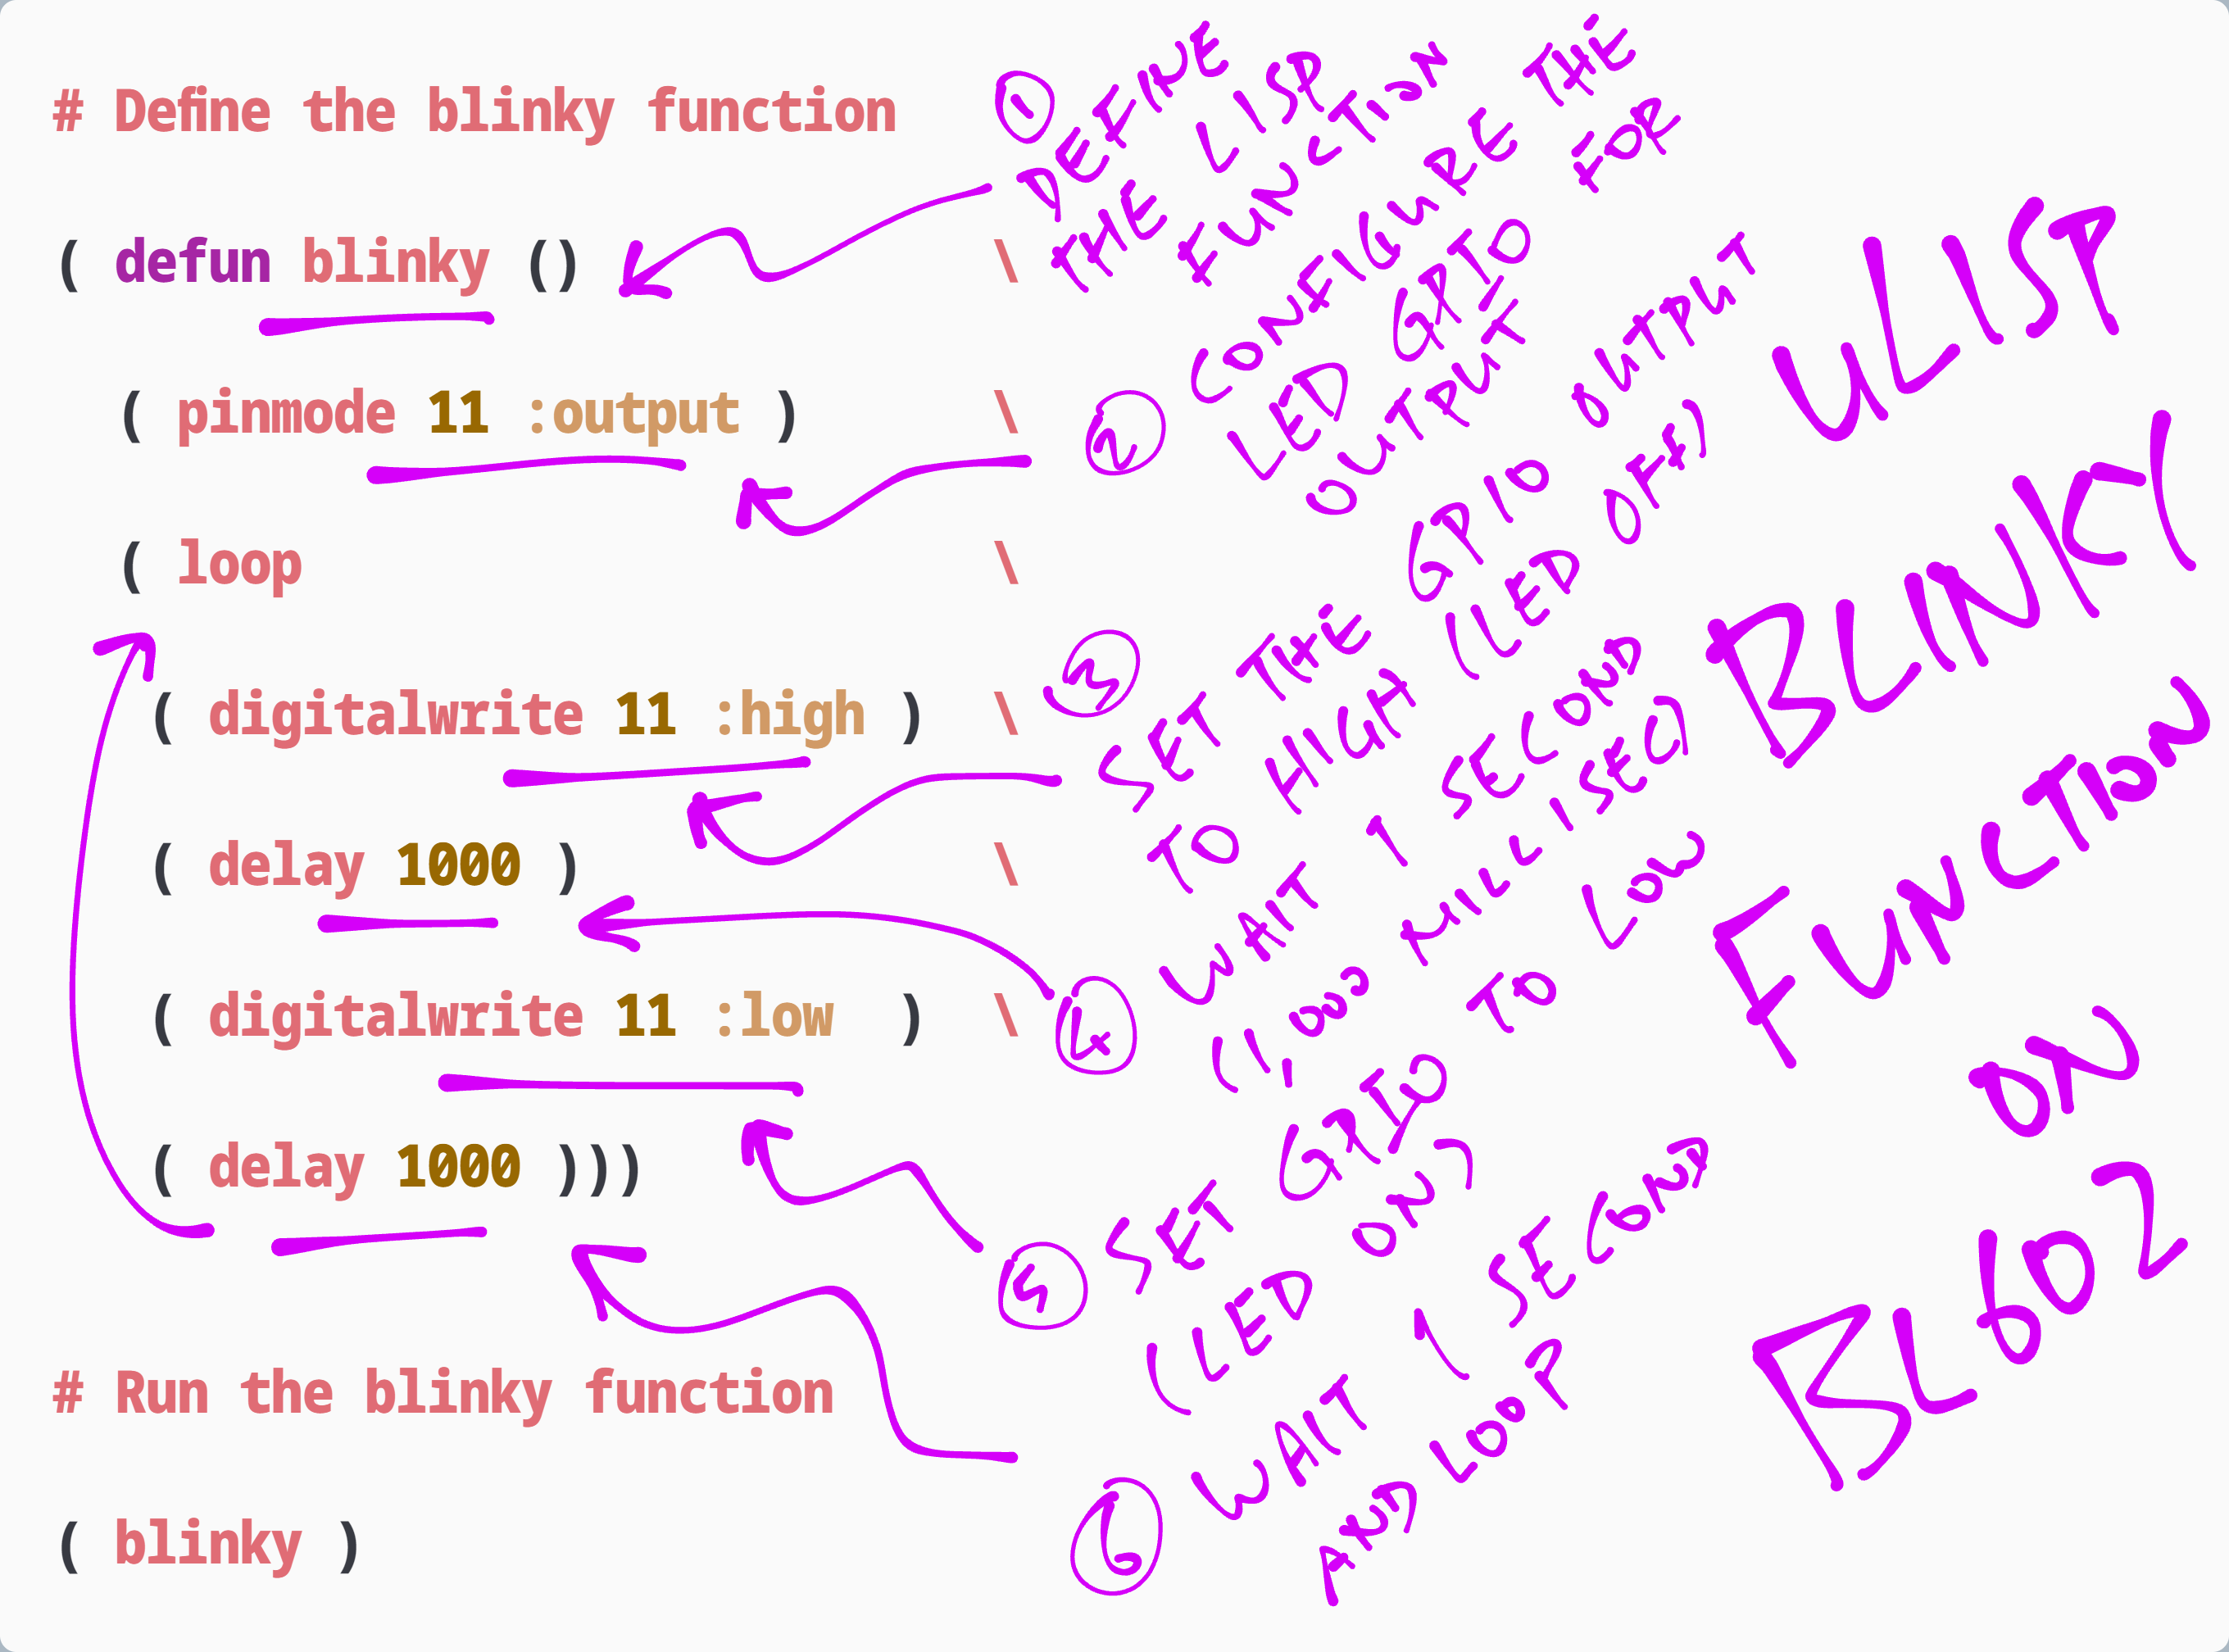 # Define the blinky function
( defun blinky () \
( pinmode 11 :output ) \
( loop \
( digitalwrite 11 :high ) \
( delay 1000 ) \
( digitalwrite 11 :low ) \
( delay 1000 )))
# Run the blinky function
( blinky )
1
DEFINE
THE LISP
FUNCTION
2
CONFIGURE THE
LED GPIO FOR
OUTPUT
3
SET THE GPIO OUTPUT
TO HIGH (LED OFF)
4
WAIT 1 SECOND
(1,000 MILLISEC)
5
SET GPIO TO LOW
(LED ON)
6
WAIT 1 SECOND
AND LOOP
ULISP
BLINKY
FUNCTION
ON
BL602